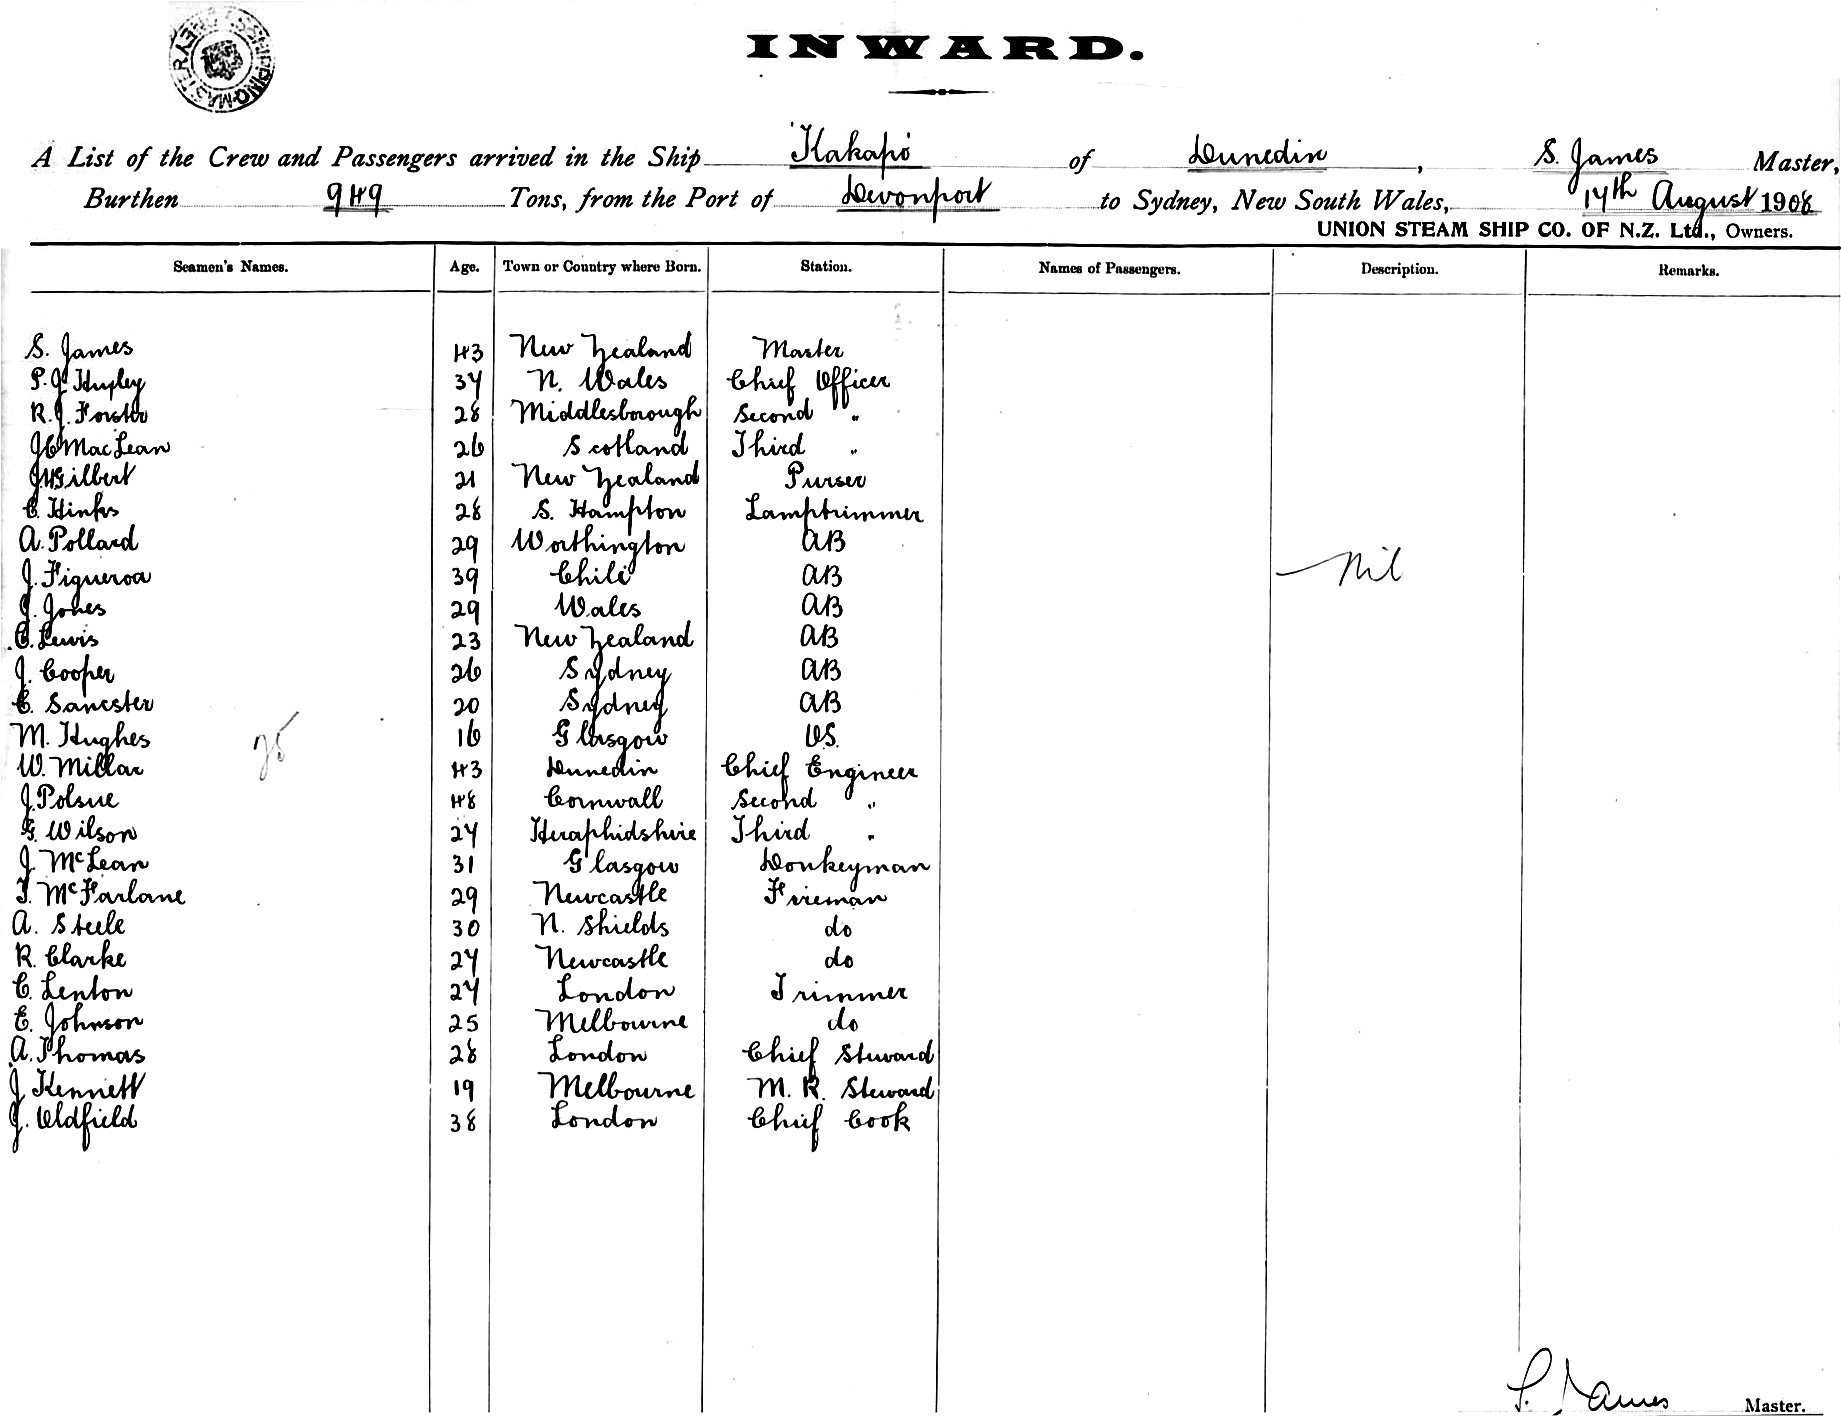 SHIPPING MASTER SYDNEY
INWARD.
A List of the Crew and Passengers arrived in the Ship Kakapo of Dunedin, S. James Master,
Burthen 949 Tons, from the Port of Devonport to Sydney, New South Wales, 14th August 1908
UNION STEAM SHIP CO. OF N.Z. Ltd., Owners.
Seamen's Names. Age. Town or Country where Born. Station. Names of Passengers. Description. Remarks.
S. James 43 New Zealand Master
P. J. Huxley 34 N. Wales Chief Officer
R. J. Forster 28 Middlesborough Second "
J C MacLean 26 Scotland Third "
J W Gilbert 21 New Zealand Purser
C. Hinks 28 S. Hampton Lamptrimmer
A. Pollard 29 Worthington AB
J. Figueroa 39 Chile AB
Nil
J. Jones 29 Wales AB
C. Lewis 23 New Zealand AB
J. Cooper 26 Sydney AB
C. Sancster 20 Sydney AB
M. Hughes 16 Glasgow O.S.
25
W. Millar 43 Dunedin Chief Engineer
J. Polsue 48 Cornwall Second "
G. Wilson 24 Heraphidshire Third "
J. McLean 31 Glasgow Donkeyman
T. McFarlane 29 Newcastle Fireman
A. Steele 30 N. Shields do
R. Clarke 24 Newcastle do
C. Lenton 24 London Trimmer
E. Johnson 25 Melbourne do
A. Thomas 28 London Chief Steward
J Kennett 19 Melbourne M. R. Steward
J. Oldfield 38 London Chief Cook
S. James Master.